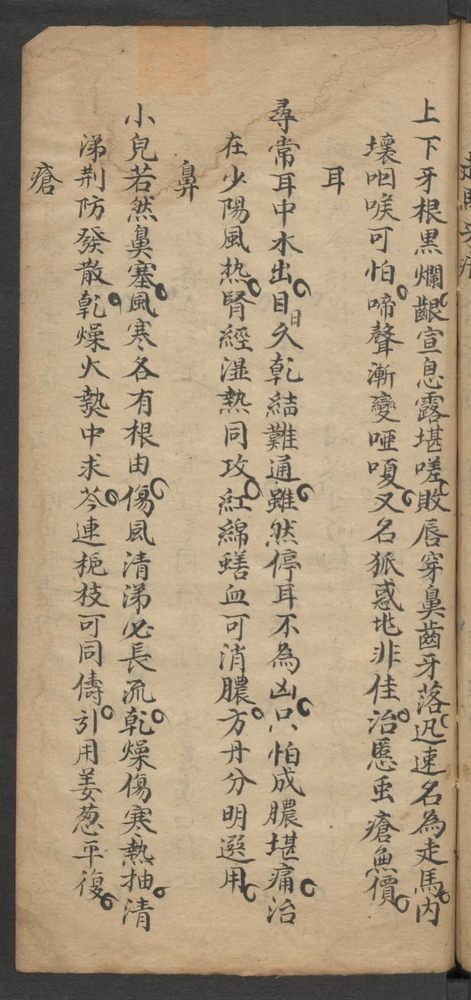 上下牙根黑爛齦宣息露堪嗟敗唇穿鼻齒牙落迅速名為走馬內
壞咽喉可怕啼聲漸變啞嗄又名狐惑地非佳治慝虫瘡無價
耳
尋常耳中水出目日久乾結難通雖然停耳不為凶只怕成膿堪痛治
在少陽風热腎經湿熱同攻紅綿蟮血可消膿方丹分明選用
鼻
小兒若然鼻塞風寒各有根由傷風清涕必長流乾燥傷寒熱抽清
涕荆防發散乾燥火熱中求芩連梔枝可同儔引用姜葱平復
瘡